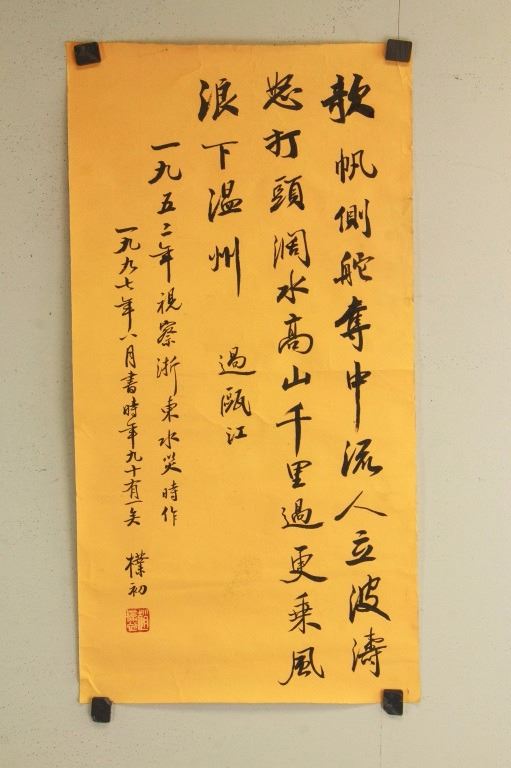 欹帆側舵奪中流人立波濤
怒打頭濶水高山千里過更乘風
浪下温州
過甌江
一九五二年視察浙東水災時作
一九九七年八月書時年九十有一矣
樸初